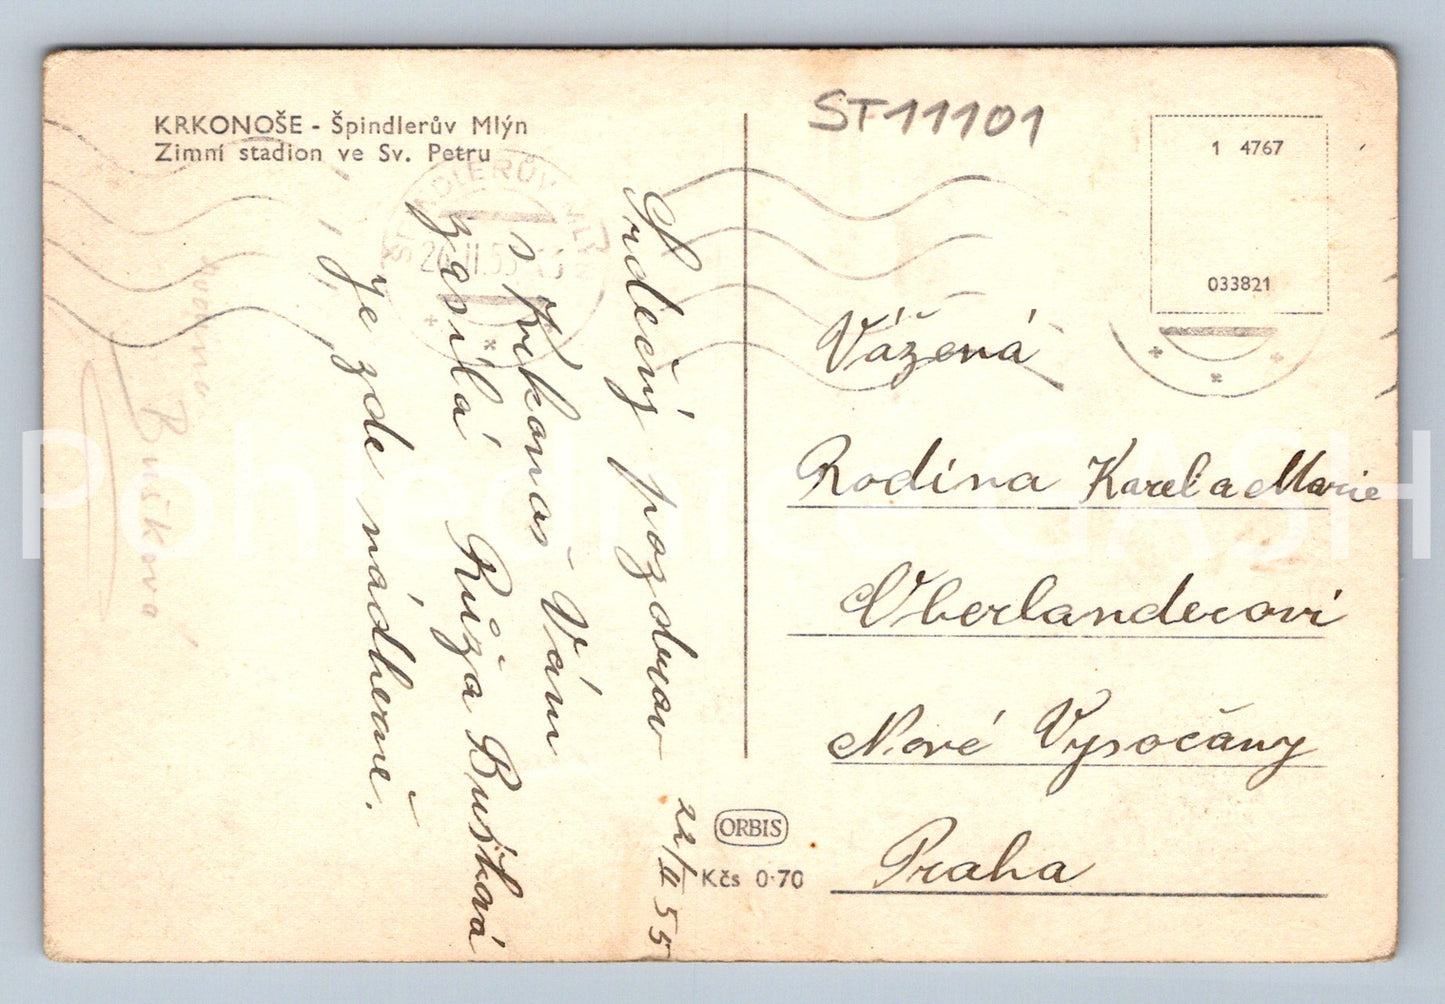 KRKONOŠE - Špindlerův Mlýn
Zimní stadion ve Sv. Petru
ST11101
1 4767
033821
ŠPINDLERŮV MLÝN
Srdečný pozdrav
s Krkonoš Vám
zasílá Růža Bušková
Je zde nádherně.
22/II 55
Bušková
Vážená
Rodina Karel a Marie
Oberlanderovi
Nové Vysočany
Praha
ORBIS
Kčs 0·70
Pohlednice GASH